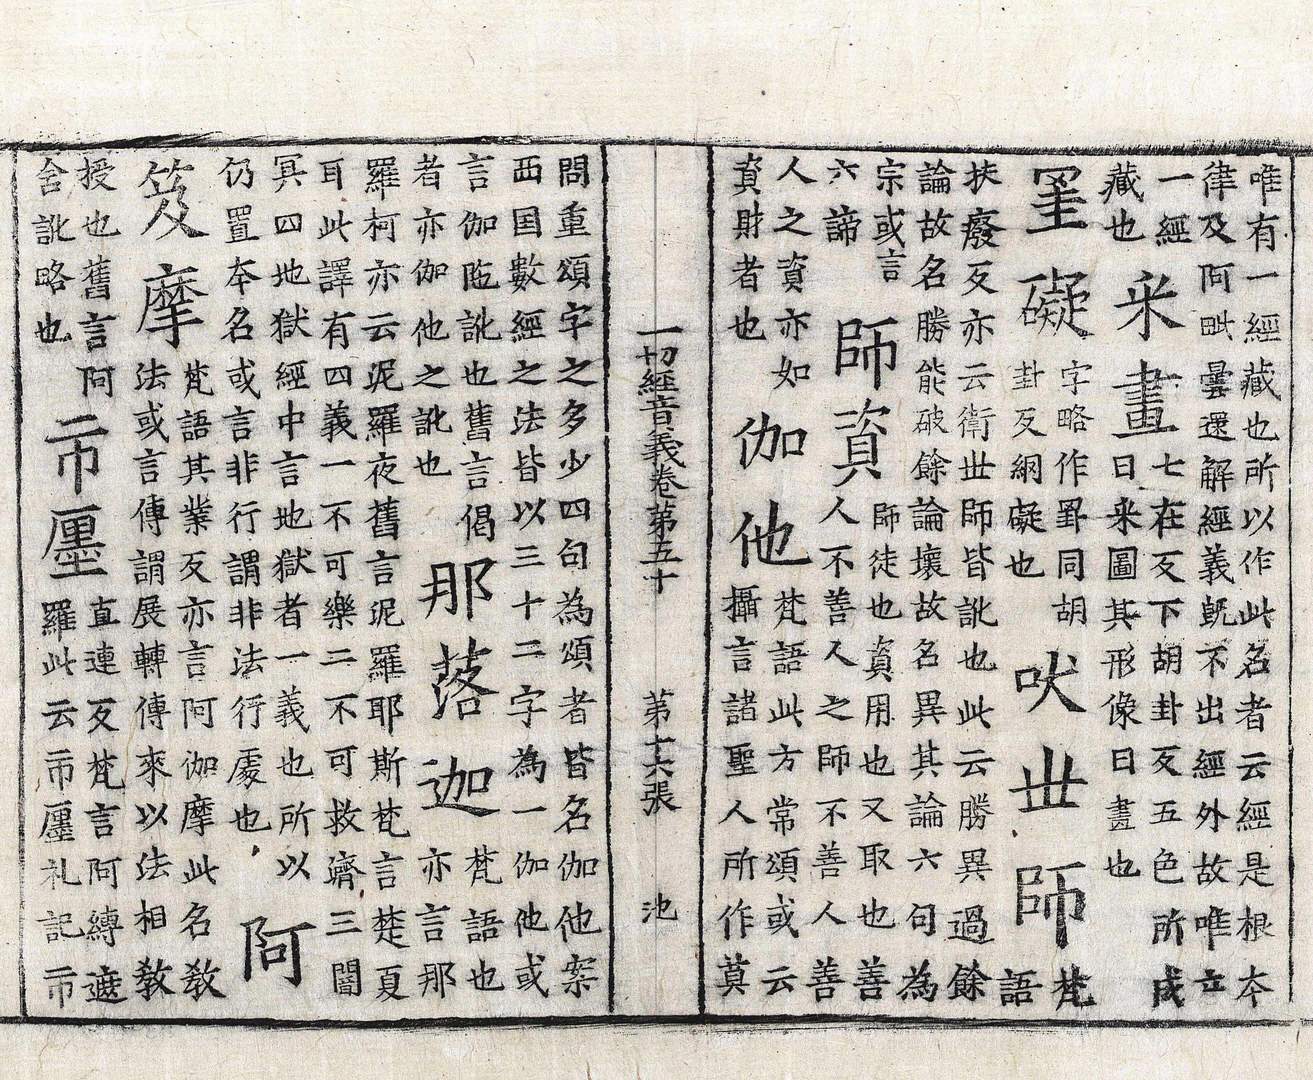 唯有一經藏也所以作此名者云經是根本
律及阿毗曇還解經義既不出經外故唯立
一經
藏也
采畫
七在反下胡卦反五色所成
曰采圖其形像曰畫也
罣礙
字略作罫同胡
卦反網礙也
吠世師
梵
語
扶廢反亦云衛世師皆訛也此云勝異過餘
論故名勝能破餘論壞故名異其論六句為
宗或言
六諦
師資
師徒也資用也又取也善
人不善人之師不善人善
人之資亦如
資財者也
伽他
梵語此方常頌或云
攝言諸聖人所作莫
一切經音義卷第五十 第十六張 池
問重頌字之多少四句為頌者皆名伽他案
西国數經之法皆以三十二字為一伽他或
言伽陁訛也舊言偈
者亦伽他之訛也
那落迦
梵語也
亦言那
羅柯亦云泥羅夜舊言泥羅耶斯梵言楚夏
耳此譯有四義一不可樂二不可救濟三闇
冥四地獄經中言地獄者一義也所以
仍置本名或言非行謂非法行處也
阿
笈摩
梵語其業反亦言阿伽摩此名教
法或言傳謂展轉傳來以法相教
授也舊言阿
含訛略也
市㕓
直連反梵言阿縛遮
羅此云市㕓礼記市